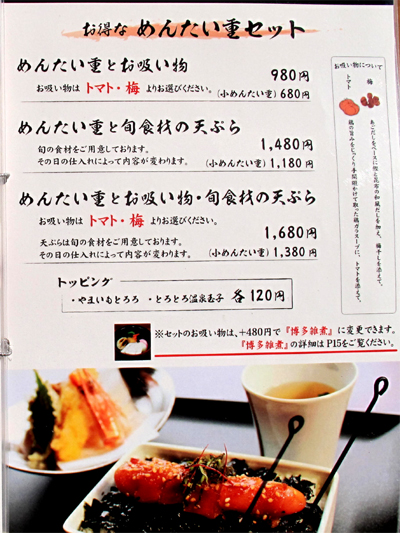 お得な めんたい重セット
めんたい重とお吸い物
980円
お吸い物は トマト・梅 よりお選びください。
(小めんたい重) 680円
めんたい重と旬食材の天ぷら
旬の食材をご用意しております。
1,480円
その日の仕入れによって内容が変わります。
(小めんたい重) 1,180円
めんたい重とお吸い物・旬食材の天ぷら
お吸い物は トマト・梅 よりお選びください。
1,680円
天ぷらは旬の食材をご用意しております。
その日の仕入れによって内容が変わります。
(小めんたい重) 1,380円
トッピング
・やまいもとろろ ・とろとろ温泉玉子 各120円
お吸い物について
梅
あごだしをベースに鰹と昆布の和風だしを加え、梅干しを添えて。
トマト
鶏の旨みをじっくり手間暇かけて取った鶏ガラスープに、トマトを添えて。
※セットのお吸い物は、+480円で『博多雑煮』に変更できます。
『博多雑煮』の詳細はP15をご覧ください。